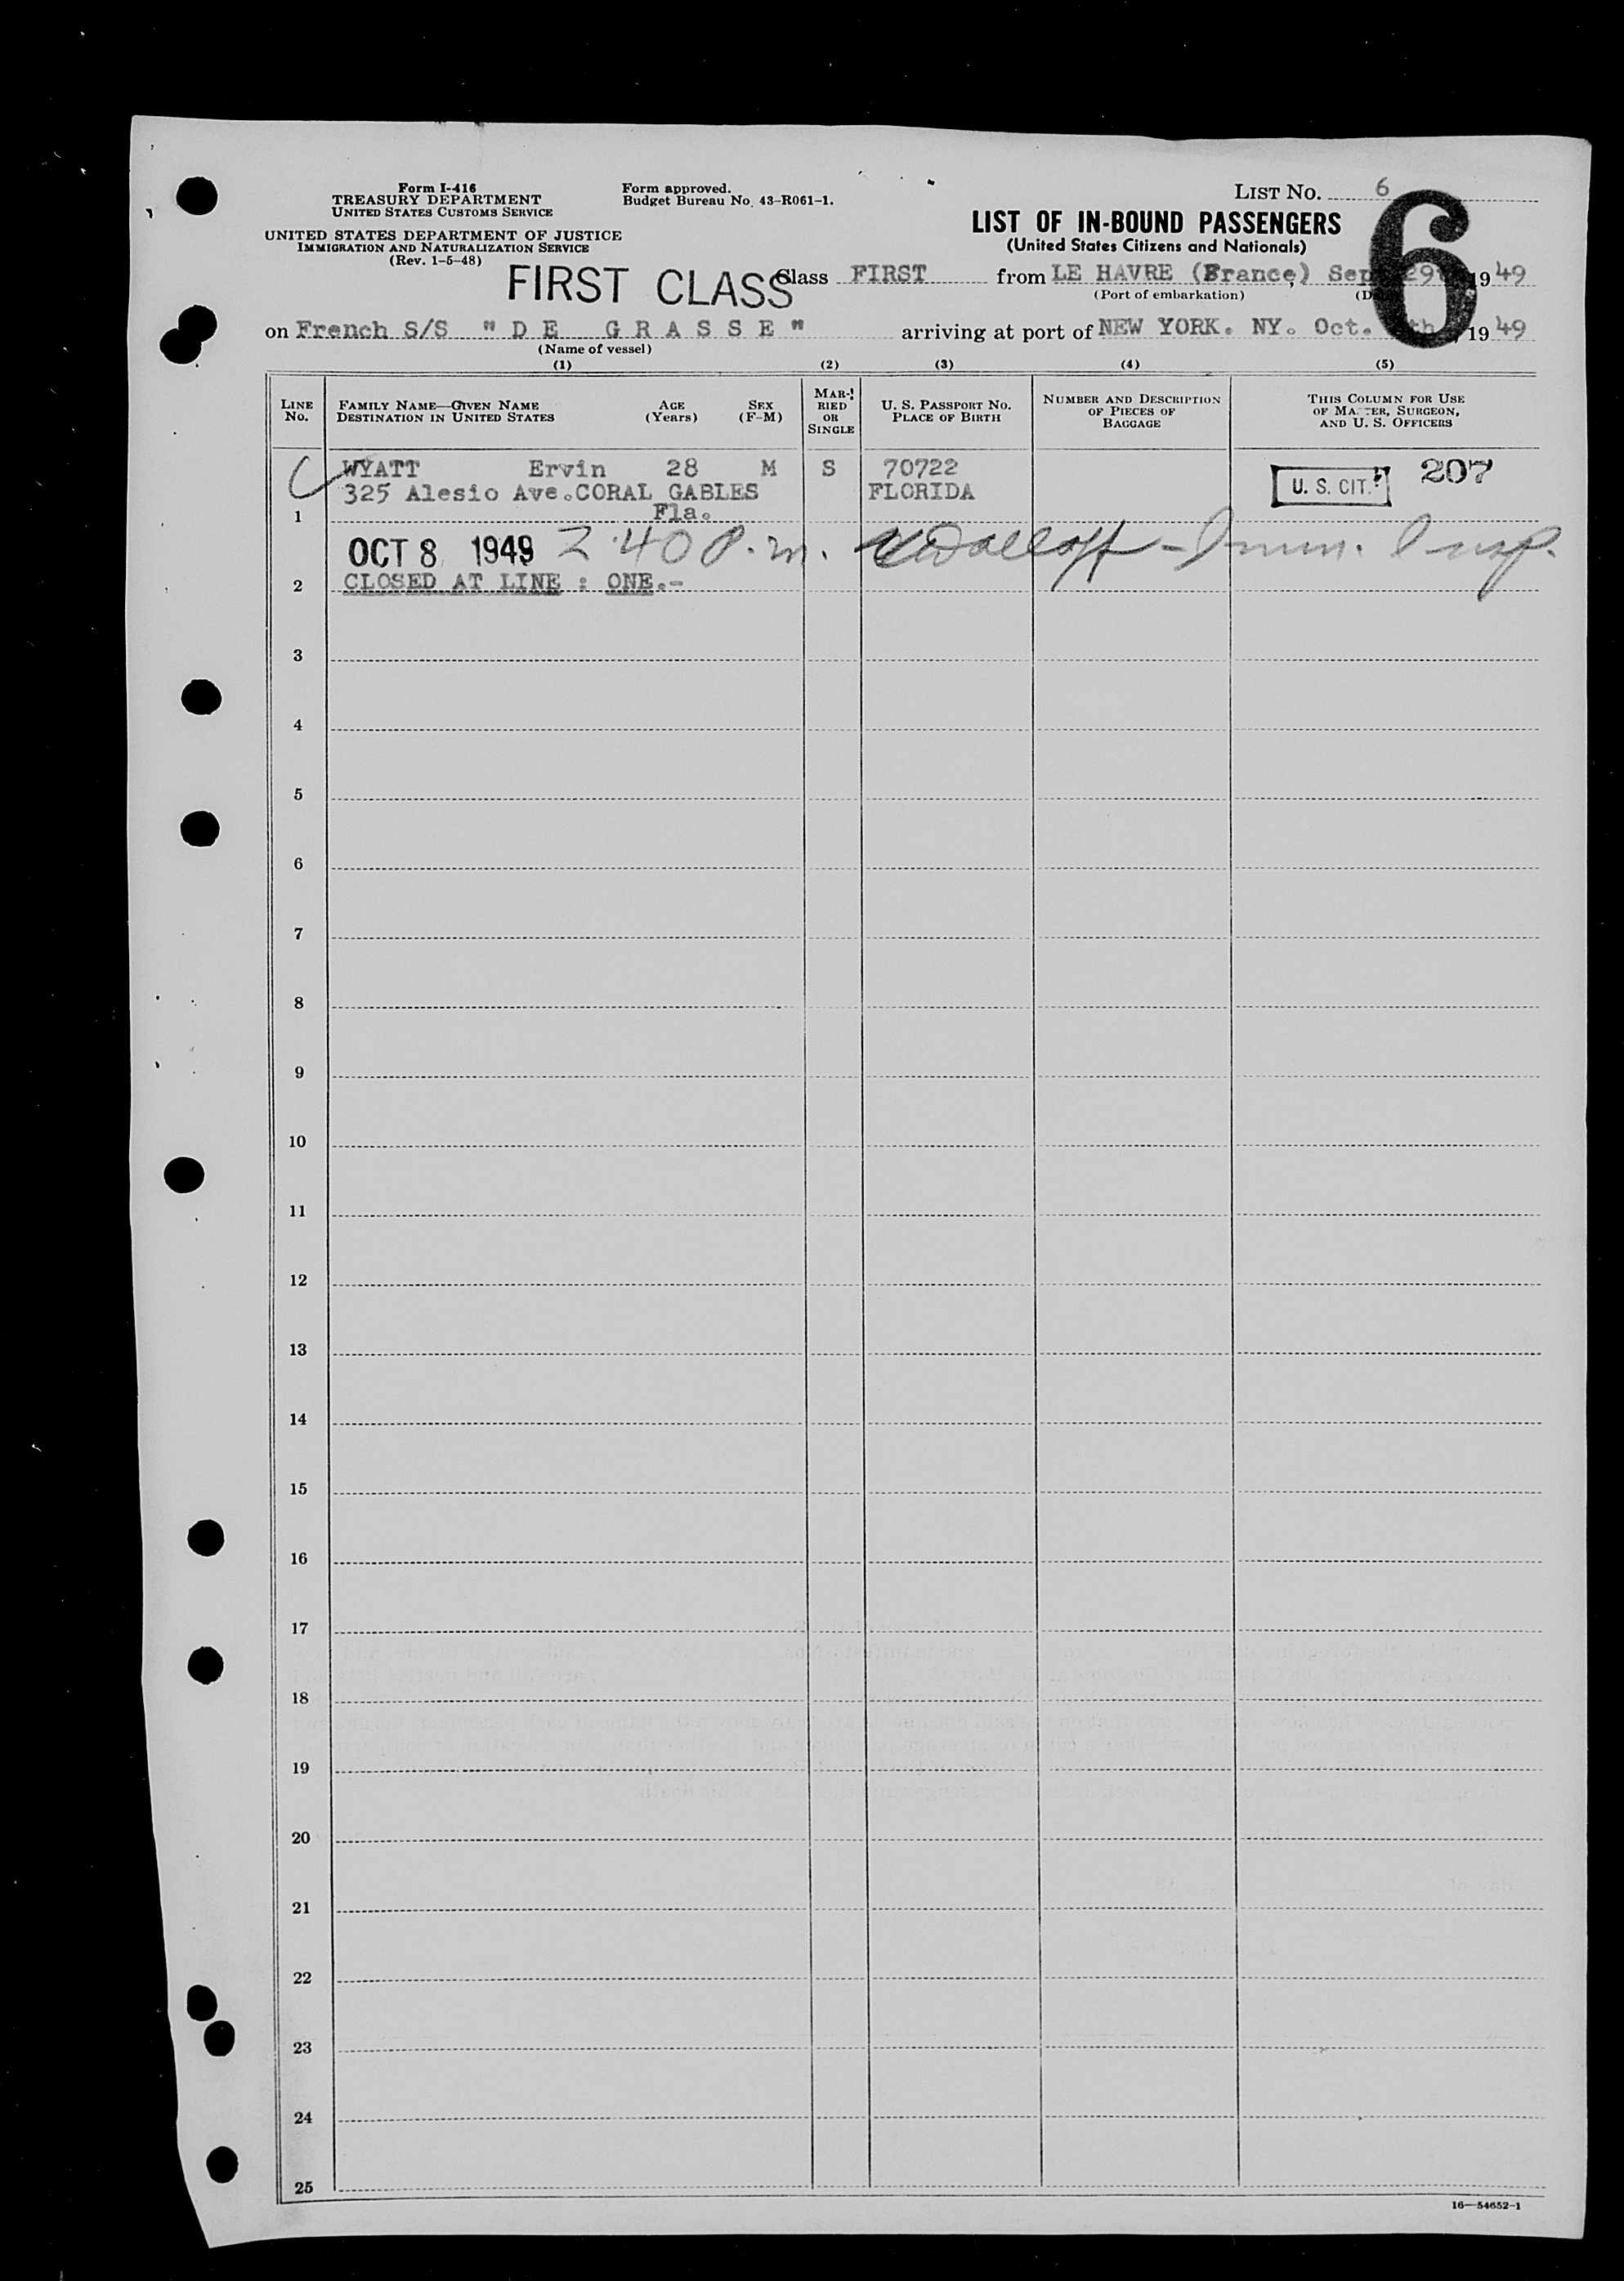 Form I-416
TREASURY DEPARTMENT
UNITED STATES CUSTOMS SERVICE
UNITED STATES DEPARTMENT OF JUSTICE
IMMIGRATION AND NATURALIZATION SERVICE
(Rev. 1-5-48)
Form approved.
Budget Bureau No. 43-R061-1.
LIST NO. 6
6
LIST OF IN-BOUND PASSENGERS
(United States Citizens and Nationals)
FIRST CLASS
Class FIRST from LE HAVRE (France) 1949
(Port of embarkation)
on French S/S "DE GRASSE" arriving at port of NEW YORK. NY. Oct. 1949
(Name of vessel)
(1) (2) (3) (4) (5)
LINE NO.
FAMILY NAME—GIVEN NAME
DESTINATION IN UNITED STATES
AGE (Years)
SEX (F-M)
MARRIED OR SINGLE
U. S. PASSPORT NO.
PLACE OF BIRTH
NUMBER AND DESCRIPTION OF PIECES OF BAGGAGE
THIS COLUMN FOR USE OF MASTER, SURGEON, AND U. S. OFFICERS
WYATT Ervin 28 M S 70722 U. S. CIT. 207
325 Alesio Ave. CORAL GABLES FLORIDA
1 Fla.
OCT 8 1949 2:40 P.m. - Imm. Insp.
2 CLOSED AT LINE : ONE.-
3
4
5
6
7
8
9
10
11
12
13
14
15
16
17
18
19
20
21
22
23
24
25
16—54652-1